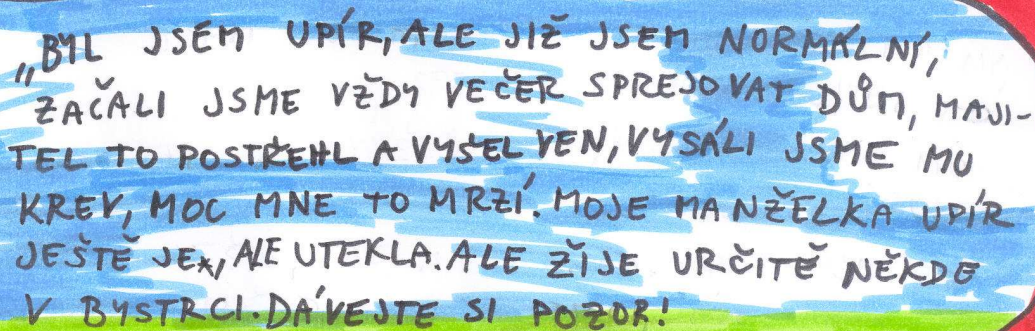 „BYL JSEM UPÍR, ALE JIŽ JSEM NORMÁLNÍ,
ZAČALI JSME VŽDY VEČER SPREJOVAT DŮM, MAJI-
TEL TO POSTŘEHL A VYŠEL VEN, VYSÁLI JSME MU
KREV, MOC MNE TO MRZÍ. MOJE MANŽELKA UPÍR
JEŠTĚ JE, ALE UTEKLA. ALE ŽIJE URČITĚ NĚKDE
V BYSTRCI. DÁVEJTE SI POZOR!